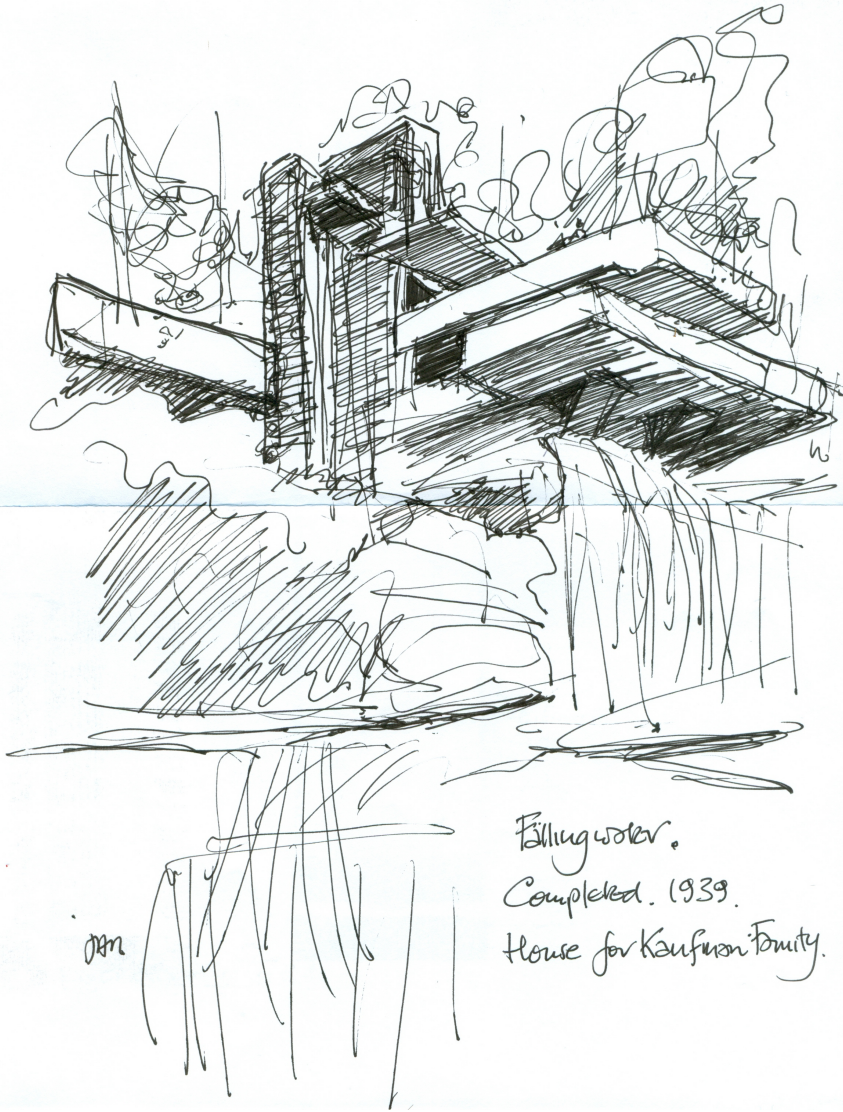 Fallingwater.
Completed. 1939.
House for Kaufman Family.